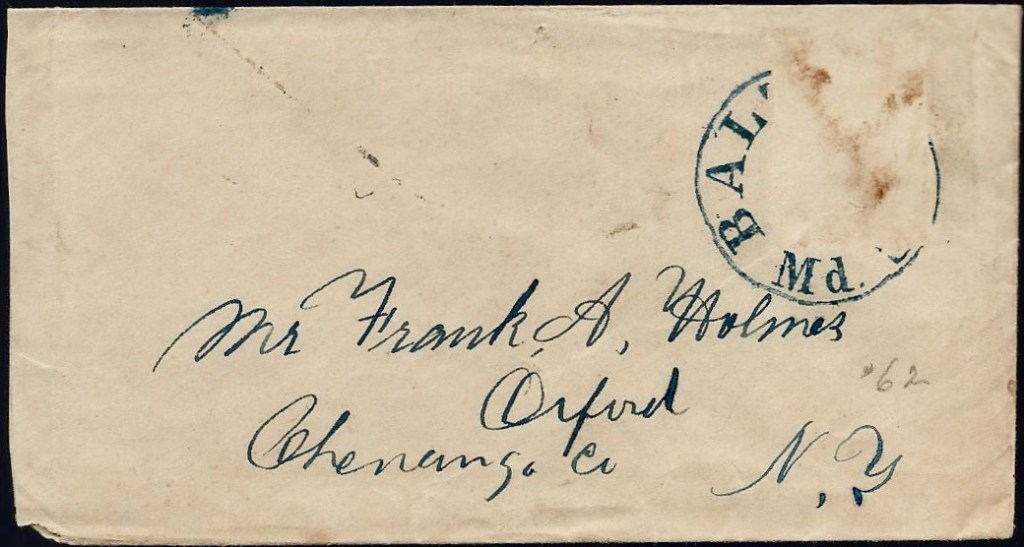 BAL
Md.
Mr Frank, A, Holmes
Oxford
Chenango Co
N, Y
'62